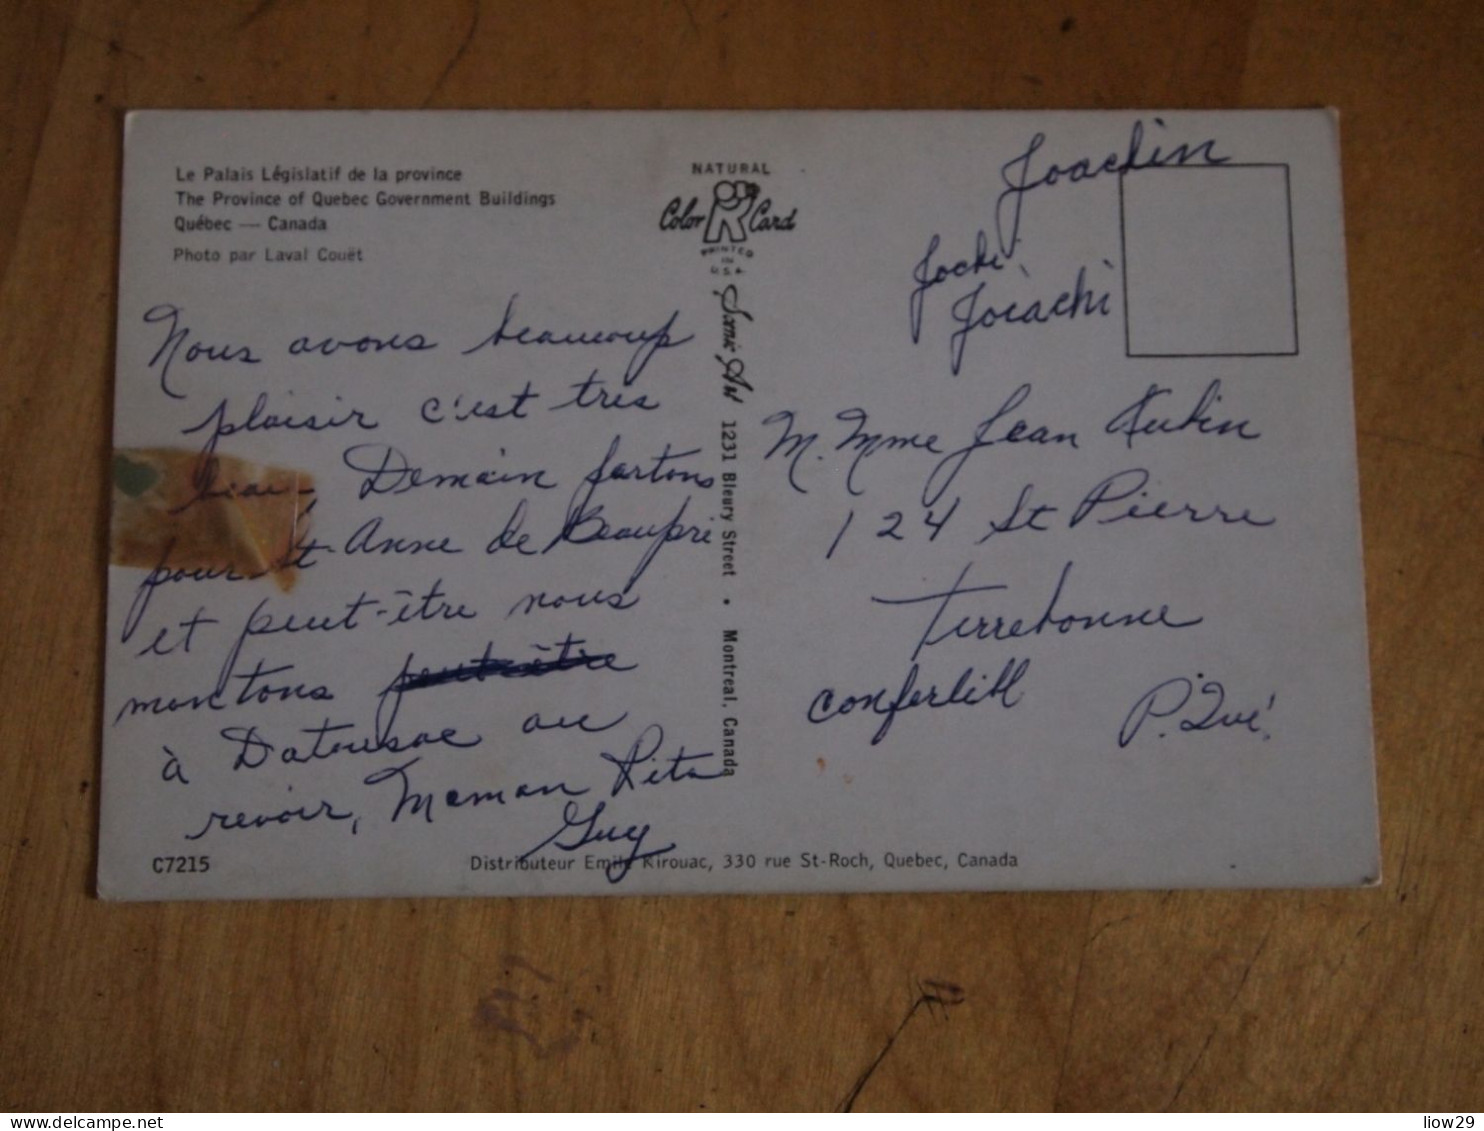 Le Palais Législatif de la province
The Province of Quebec Government Buildings
Québec — Canada
Photo par Laval Couët
Nous avons beaucoup
plaisir c'est tres
beau, Demain partons
pour St-Anne de Beaupré
et peut-être nous
montons peut-être
à Datousac au
revoir, Maman Rita
Guy
C7215
Distributeur Emile Kirouac, 330 rue St-Roch, Quebec, Canada
NATURAL
Color Card
PRINTED
IN
U.S.A.
Scenic Art 1231 Bleury Street • Montreal, Canada
Joachin
Jochi
Joiachi
M. Mme Jean Aubin
124 St Pierre
Terrebonne
P. Qué.
liow29